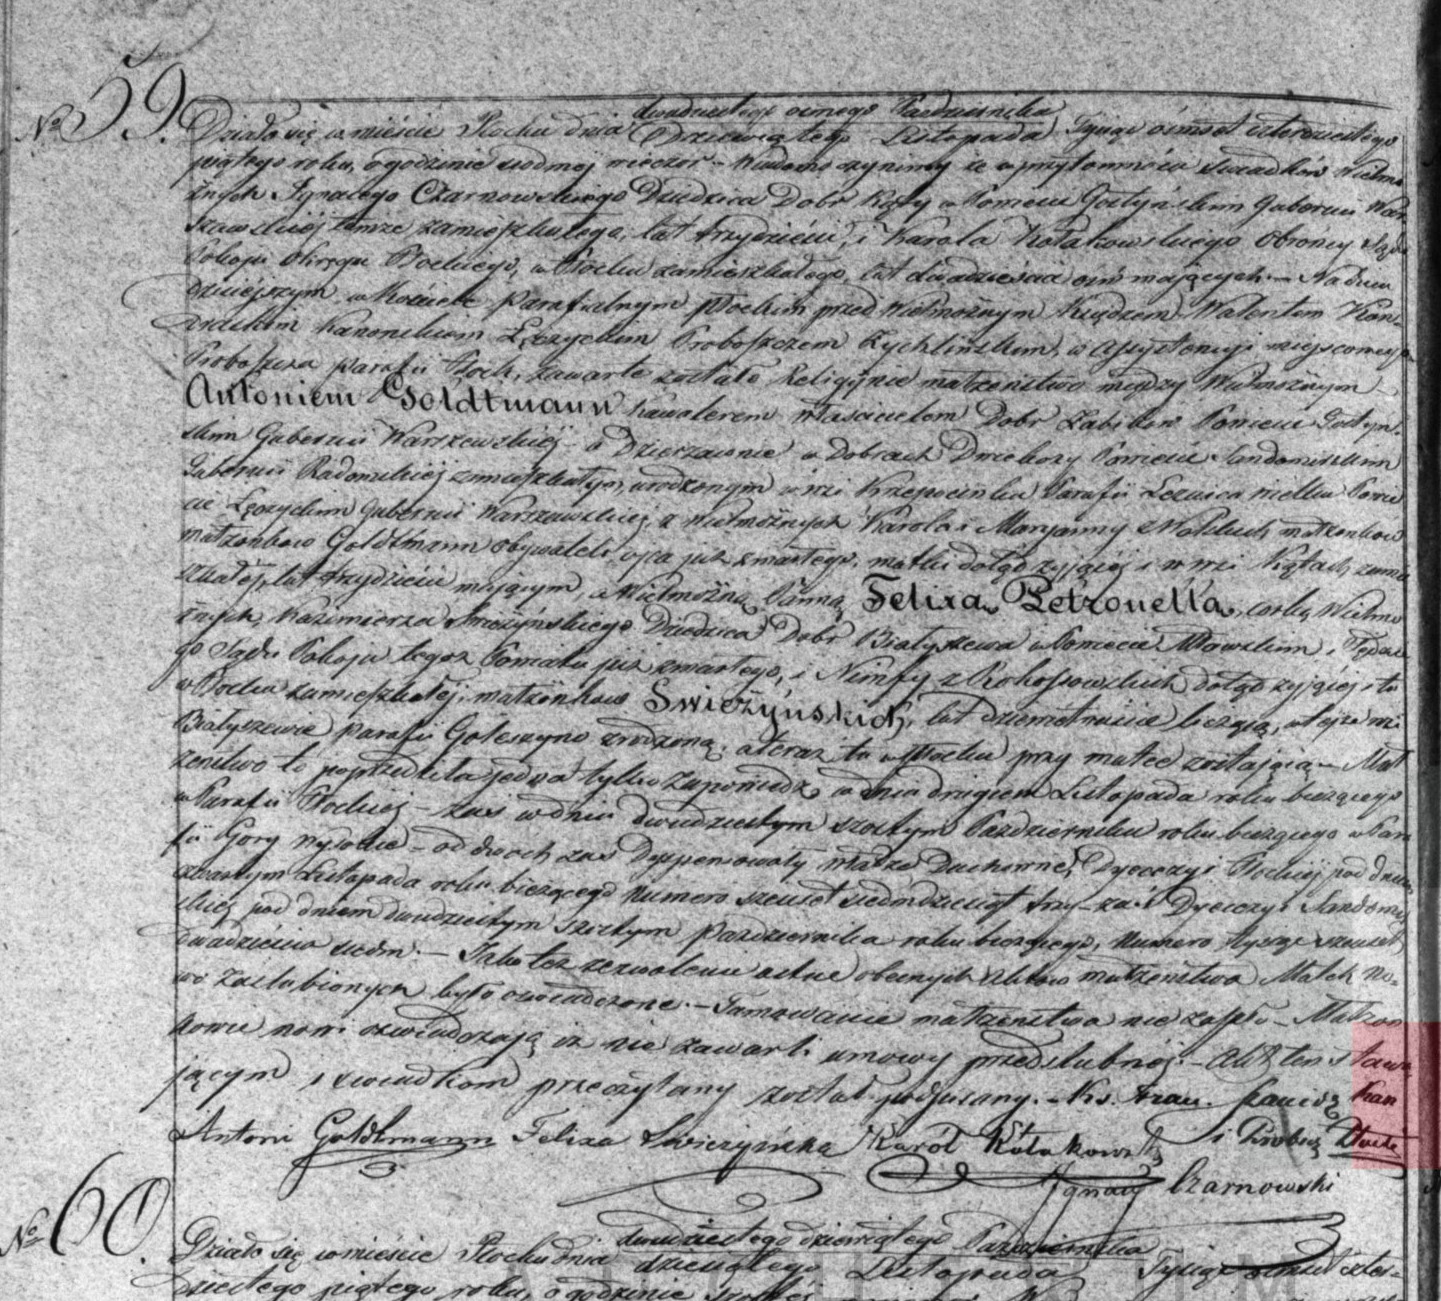 № 59.
dwudziestego ósmego Października
Działo się w mieście Płocku dnia Dziewiątego Listopada Tysiąc ósmset czterdziestego
piątego roku, o godzinie siódmej wieczór. – Wiadomo czynimy że w przytomności świadków Wielmo
żnych Ignacego Czarnowskiego Dziedzica Dobr Kąty w Powiecie Gostyńskim Gubernii War
szawskiej tamże zamieszkałego, lat trzydzieści, i Karola Kołakowskiego Obrońcy Sądu
Pokoju Okręgu Płockiego, w Płocku zamieszkałego, lat dwadzieścia ośm mających. – Na dniu
dzisiejszym w Kościele Parafialnym Płockim przed Wielmożnym Księdzem Walentem
Kanonikiem Łęczyckim Proboszczem Żychlińskim, w assystencyi miejscowego
Proboszcza parafii Płock, zawarte zostało Religijne małżeństwo między Wielmożnym
Antoniem Goldtmann Kawalerem właścicielem Dobr Żabików Powiecie Gostyń
skim Gubernii Warszawskiej – a Dzierżawnie w Dobrach Dwikozy Powiecie Sandomirskim
Gubernii Radomskiej zamieszkałym, urodzonym w wsi Krzepocinku Parafii Leznica wielka Powie
cie Łęczyckim Gubernii Warszawskiej, z Wielmożnych Karola i Maryanny z małżonków
małżonków Goldtmann obywateli ojca już zmarłego, matki dotąd żyjącej i w wsi Kątach zamie
szkałej, lat trzydzieści mającym, a Wielmożną Panną Felixą Petronellą, córką Wielmo
żnych, Kazimierza Świeżyńskiego Dziedzica Dobr Białyszewa w Powiecie Mławskim, i Sędzie
go Sądu Pokoju tegoż Powiatu już zmarłego, i Nimfy z Rokossowskich dotąd żyjącej i tu
w Płocku zamieszkałej, małżonków Świeżyńskich, lat dziewietnaście liczącą, w tejże wsi
Białyszewie parafii Goleszyno zrodzoną, a teraz tu w Płocku przy matce zostającą – Mał
żeństwo to poprzedziła jedna tylko Zapowiedź w dniu drugiem Listopada roku bieżącego
w Parafii Płockiej – zaś w dniu dwudziestym szóstym Października roku bieżącego w Para
fii Góry Wysokie – od dwóch zaś Dyspensowały władze Duchowne, Dyecezyi Płockiej pod dniem
czwartym Listopada roku bieżącego Numero szesset siedmdziesiąt trzy – zaś Dyecezyi Sandomir
skiej pod dniem dwudziestym szóstym Października roku bieżącego, Numero tysiąc szesset
dwadzieścia siedm. – Jako też zezwolenie ustne obecnych aktowi małżeństwa Matek no
wo zaślubionych było oświadczone. – Tamowanie małżeństwa nie zaszło – Małżon
kowie nowi oświadczają iż nie zawarli umowy przedślubnej. – Akt ten stawa
jącym i świadkom przeczytany został podpisany. – Ks. Kan
i Probosz Płocki
Antoni Goldtmann Felixa Świeżyńska Karol Kołakowski
Ignacy Czarnowski
№ 60.
dwudziestego dziewiątego Października
Działo się w mieście Płocku dnia dziewiątego Listopada Tysiąc ośmset czter
dziestego piątego roku, o godzinie szóstej